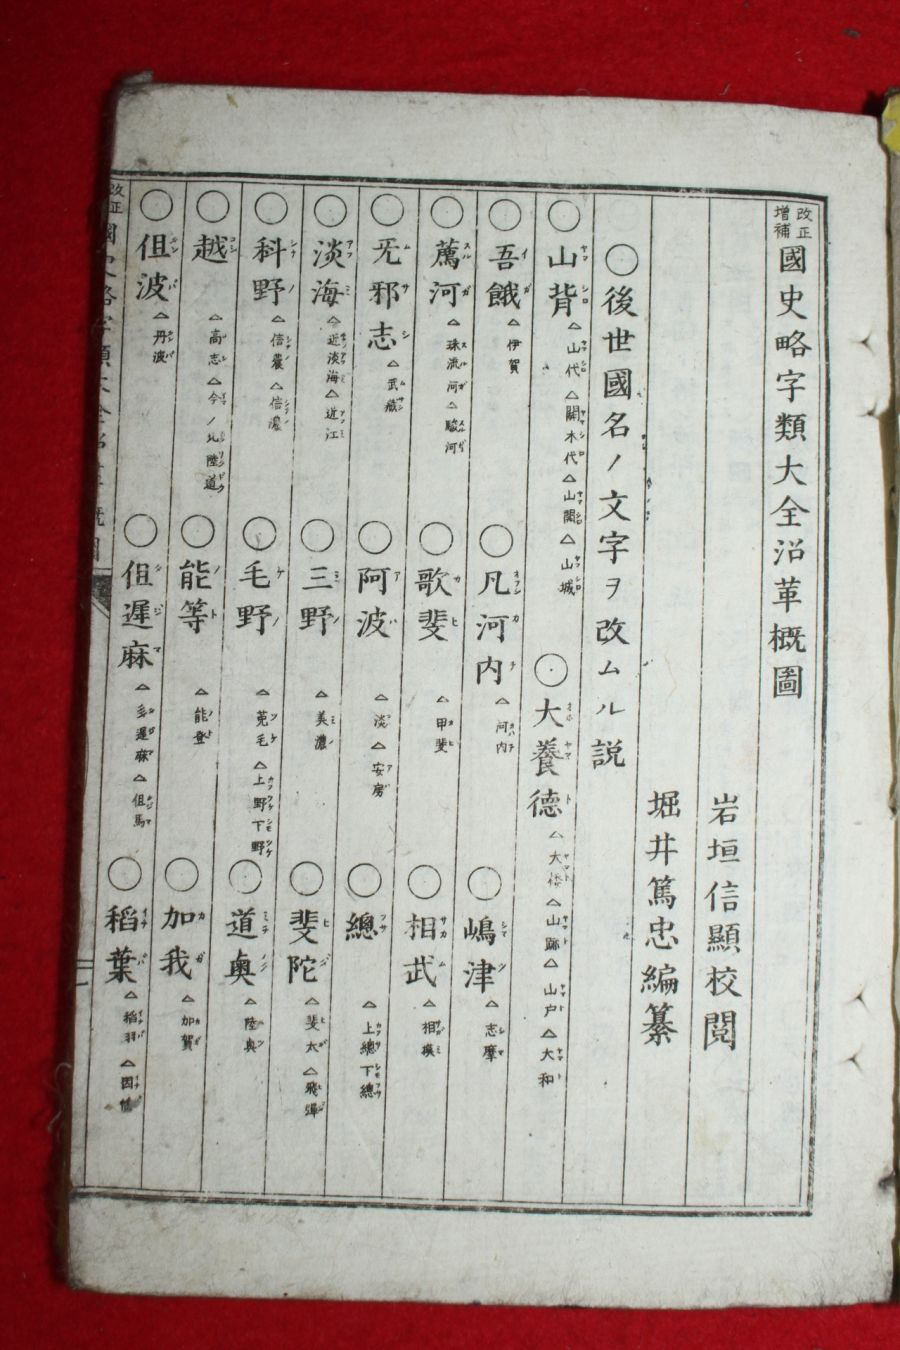 改正增補 國史略字類大全沿革概圖
岩垣信顯校閲
堀井篤忠編纂
○後世國名ノ文字ヲ改ムル説
○山背 △山代△開木代△山開△山城 ○大養德 △大倭△山跡△山戸△大和
○吾餓 △伊賀 ○凡河内 △河内 ○嶋津 △志摩
○薦河 △珠流河△駿河 ○歌斐 △甲斐 ○相武 △相摸
○旡邪志 △武藏 ○阿波 △淡△安房 ○總 △上總下總
○淡海 △近淡海△近江 ○三野 △美濃 ○斐陀 △斐太△飛彈
○科野 △信農△信濃 ○毛野 △兎毛△上野下野 ○道奥 △陸奥
○越 △高志△今ノ北陸道 ○能等 △能登 ○加我 △加賀
○但波 △丹波 ○但遲麻 △多遲麻△但馬 ○稻葉 △稻羽△因幡
改正